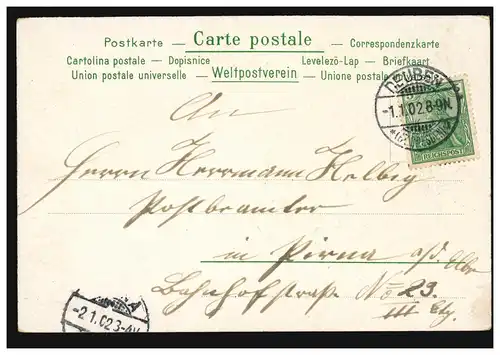 Postkarte — Carte postale — Correspondenzkarte
Cartolina postale — Dopisnice Levelező-Lap — Briefkaart
Union postale universelle — Weltpostverein — Unione postale
DEUBEN
-1.1.02.8-9N.
REICHSPOST
An
Herrn Herrmann Helbig
Postbeamter
in Pirna a/d. Elbe
Bahnhofstraße No 23.
III Etg.
-2.1.02.3-4V.